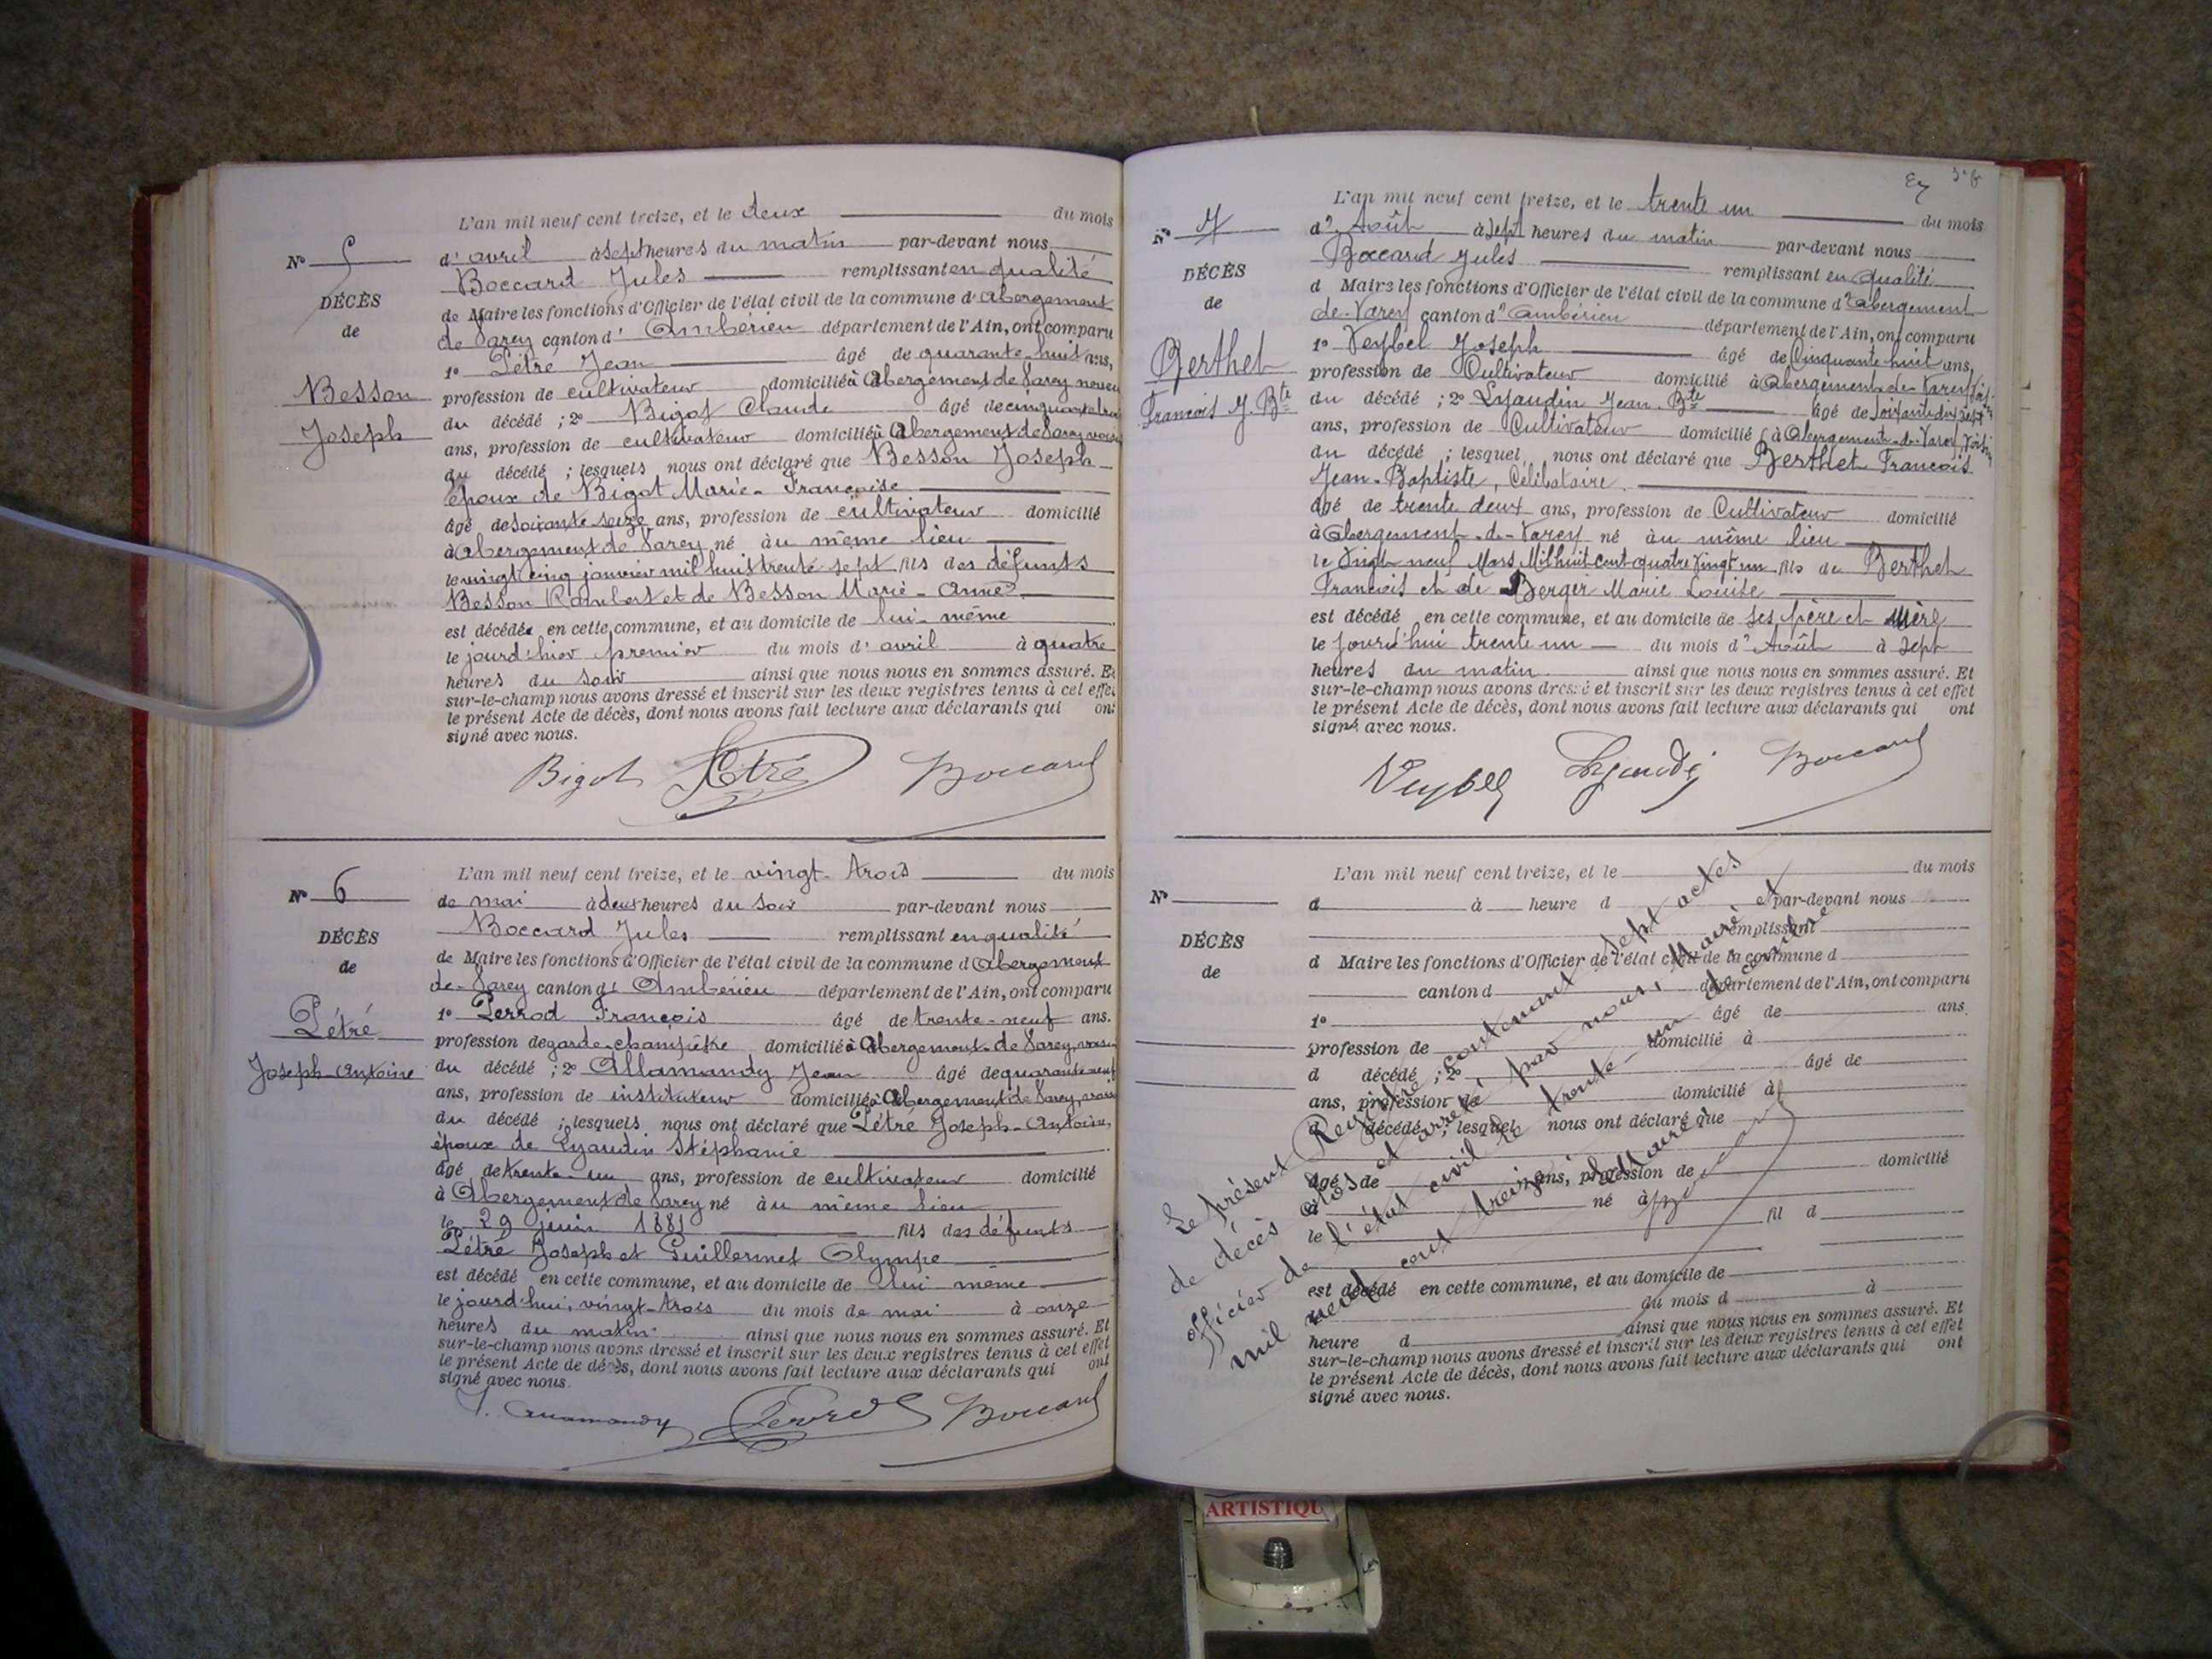 L'an mil neuf cent treize, et le deux du mois
N° 5
d'avril à sept heures du matin par-devant nous
Boccard Jules remplissant en qualité
DÉCÈS
de Maire les fonctions d'Officier de l'état civil de la commune d'Abergement
de
de Varey canton d'Ambérieu département de l'Ain, ont comparu
1° Pétré Jean âgé de quarante-huit ans,
Besson
profession de cultivateur domicilié à Abergement de Varey neveu
Joseph
du décédé ; 2° Bigot Claude âgé de cinquante
ans, profession de cultivateur domicilié à Abergement de Varey voisin
du décédé ; lesquels nous ont déclaré que Besson Joseph
époux de Bigot Marie-Françoise
âgé de soixante seize ans, profession de cultivateur domicilié
à Abergement de Varey né au même lieu
le vingt cinq janvier mil huit trente sept fils des défunts
Besson Rambert et de Besson Marie-Anne
est décédé en cette commune, et au domicile de lui-même
le jour d'hier premier du mois d'avril à quatre
heures du soir ainsi que nous nous en sommes assuré. Et
sur-le-champ nous avons dressé et inscrit sur les deux registres tenus à cet effet
le présent Acte de décès, dont nous avons fait lecture aux déclarants qui ont
signé avec nous.
Bigot Pétré Boccard
L'an mil neuf cent treize, et le vingt-trois du mois
N° 6
de mai à deux heures du soir par-devant nous
Boccard Jules remplissant en qualité
DÉCÈS
de Maire les fonctions d'Officier de l'état civil de la commune d'Abergement
de
de-Varey canton d'Ambérieu département de l'Ain, ont comparu
1° Perrod François âgé de trente-neuf ans.
Pétré
profession de garde-champêtre domicilié à Abergement-de Varey, voisin
Joseph-Antoine
du décédé ; 2° Allamandy Jean âgé de quarante neuf
ans, profession de instituteur domicilié à Abergement de Varey, voisin
du décédé ; lesquels nous ont déclaré que Pétré Joseph-Antoine,
époux de Lyaudin Stéphanie
âgé de trente-un ans, profession de cultivateur domicilié
à Abergement de Varey né au même lieu
le 29 juin 1881 fils des défunts
Pétré Joseph et Guillermet Olympe
est décédé en cette commune, et au domicile de lui même
le jourd'hui, vingt-trois du mois de mai à onze
heures du matin ainsi que nous nous en sommes assuré. Et
sur-le-champ nous avons dressé et inscrit sur les deux registres tenus à cet effet
le présent Acte de décès, dont nous avons fait lecture aux déclarants qui ont
signé avec nous.
J. Allamandy Perrod Boccard
L'an mil neuf cent treize, et le trente un du mois
N° 7
d'Août à sept heures du matin par-devant nous
Boccard Jules remplissant en qualité
DÉCÈS
d Maire les fonctions d'Officier de l'état civil de la commune d'Abergement
de
de-Varey canton d'Ambérieu département de l'Ain, ont comparu
1° Veybel Joseph âgé de Cinquante huit ans,
Berthet
profession de Cultivateur domicilié à Abergement-de-Varey
François J. Bte
du décédé ; 2° Lyaudin Jean-Bte âgé de soixante dix sept
ans, profession de Cultivateur domicilié à Abergement-de-Varey voisin
du décédé ; lesquel nous ont déclaré que Berthet François
Jean-Baptiste, Célibataire.
âgé de trente deux ans, profession de Cultivateur domicilié
à Abergement-de-Varey né au même lieu
le Vingt neuf Mars Mil huit cent quatre vingt un fils de Berthet
François et de Berger Marie Louise
est décédé en cette commune, et au domicile de ses père et mère
le jourd'hui trente un du mois d'Août à sept
heures du matin. ainsi que nous nous en sommes assuré. Et
sur-le-champ nous avons dressé et inscrit sur les deux registres tenus à cet effet
le présent Acte de décès, dont nous avons fait lecture aux déclarants qui ont
signé avec nous.
Veybel Lyaudin Boccard
L'an mil neuf cent treize, et le du mois
N°
d à heure d par-devant nous
remplissant
DÉCÈS
d Maire les fonctions d'Officier de l'état civil de la commune d
de
canton d département de l'Ain, ont comparu
1° âgé de ans.
profession de domicilié à
d décédé ; 2° âgé de
ans, profession de domicilié à
d décédé ; lesquel nous ont déclaré que
âgé de ans, profession de domicilié
à né à
le fil d
est décédé en cette commune, et au domicile de
du mois d à
heure d ainsi que nous nous en sommes assuré. Et
sur-le-champ nous avons dressé et inscrit sur les deux registres tenus à cet effet
le présent Acte de décès, dont nous avons fait lecture aux déclarants qui ont
signé avec nous.
Le présent Registre contenant sept actes
de décès clos et arrêté par nous, Maire et
officier de l'état civil le trente-un décembre
mil neuf cent treize. Le Maire
Boccard
ARTISTIQU